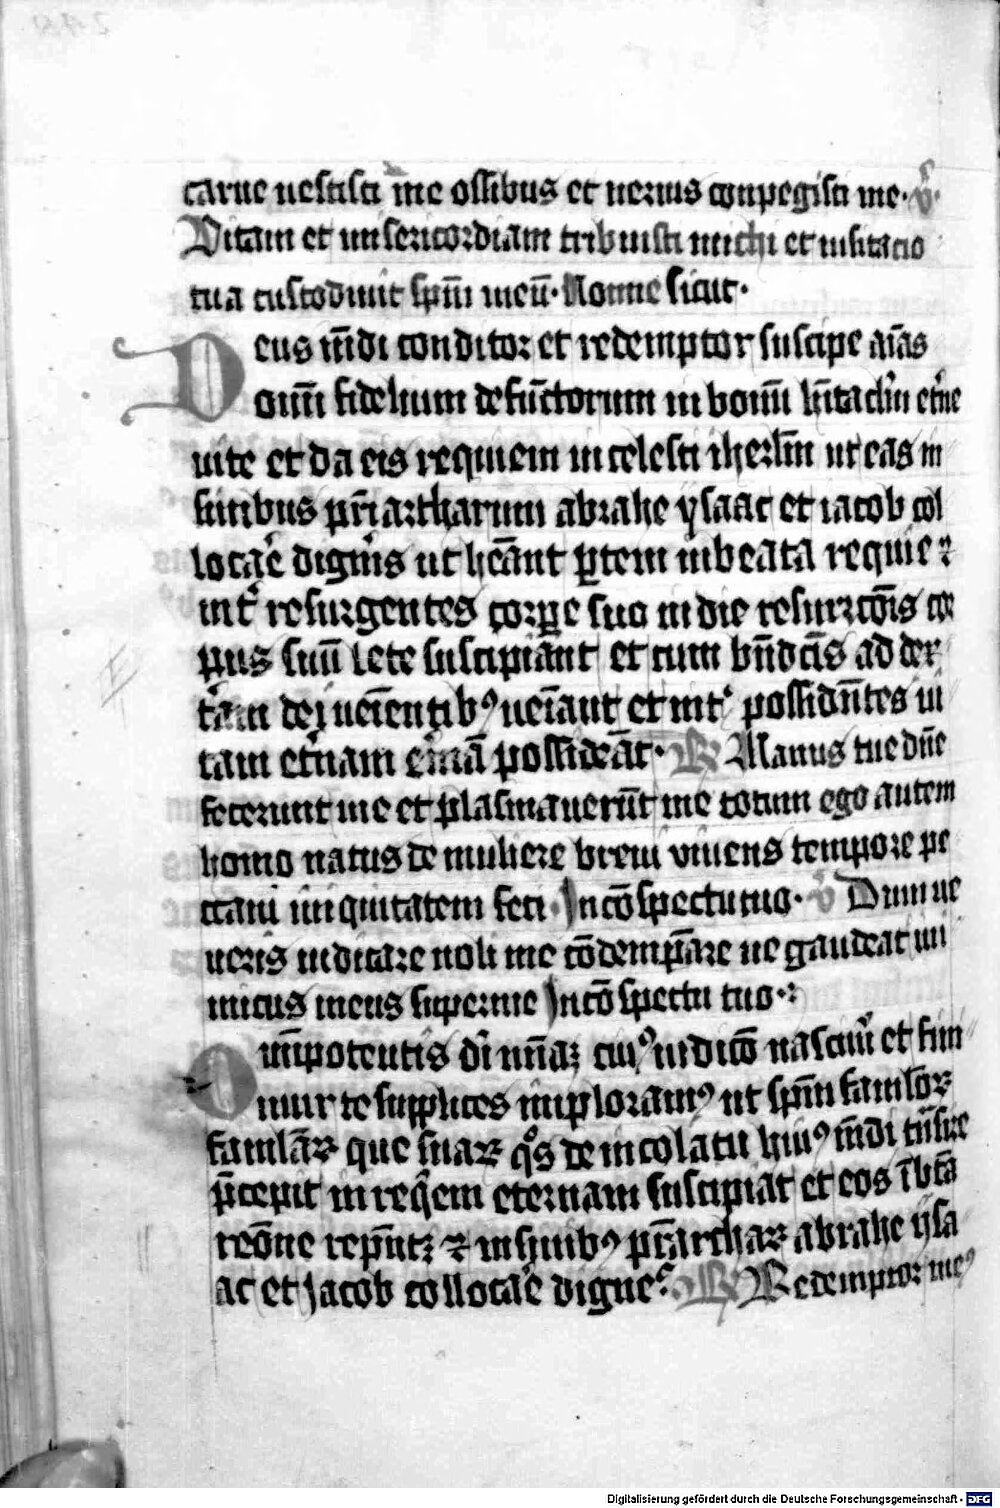 carne uestisti me ossibus et neruis conpegisti me· v̊·
Vitam et misericordiam tribuisti michi et uisitacio
tua custodiuit sp̄m meū· Nonne sicut·
Deus m̄di conditor et redemptor suscipe aīas
om̄i fidelium defūctorum in bonū h̄itaclm et'ne
uite et da eis requiem in celesti iherl̄m ut eas in
sinibus pr̄iarcharum abrahe ysaac et iacob col
locare digneris ut hēant ꝑtem in beata requie ⁊
int' resurgentes corꝑe suo in die resurrcōis cor
pus suū lete suscipiant et cum bn̄dcīs ad dex
tām dei ueīentibꝰ ueīant et int' possidn̄tes ui
tam et'nam eīnā possideāt· R Manus tue dn̄e
fecerunt me et plasmauerūt me totum ego autem
homo natus de muliere breui viuens tempore pec
caui iniquitatem feci· In cōspectu tuo· v̊ Dum ue
neris iudicare noli me cōdempn̄are ne gaudeat ini
micus meus super me In cōspectu tuo·
Om̄ipotentis dī mīaꝫ cuiꝰ iudicō nascim̄ et fini
mur te supplices imploramꝰ ut sp̄m famlorꝝ
famlāꝝ que suaꝝ q̊s de incolātu huiꝰ m̄di t̄nsire
p̄cepit in req̄em eternam suscipiat et eos ī btā
reōne rep̄ntꝫ ⁊ in sinibꝰ pr̄iarchaꝝ abrahe ysa
ac et Jacob collocare digne· R Redemptor meꝰ
Digitalisierung gefördert durch die Deutsche Forschungsgemeinschaft - DFG